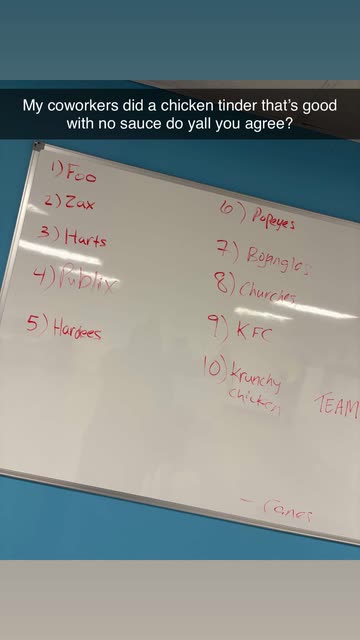 My coworkers did a chicken tinder that's good
with no sauce do yall you agree?
1) Foo
2) Zax
3) Harts
4) Publix
5) Hardees
6) Popeyes
7) Bojangles
8) Churches
9) KFC
10) Krunchy
chicken
TEAM
- Canes